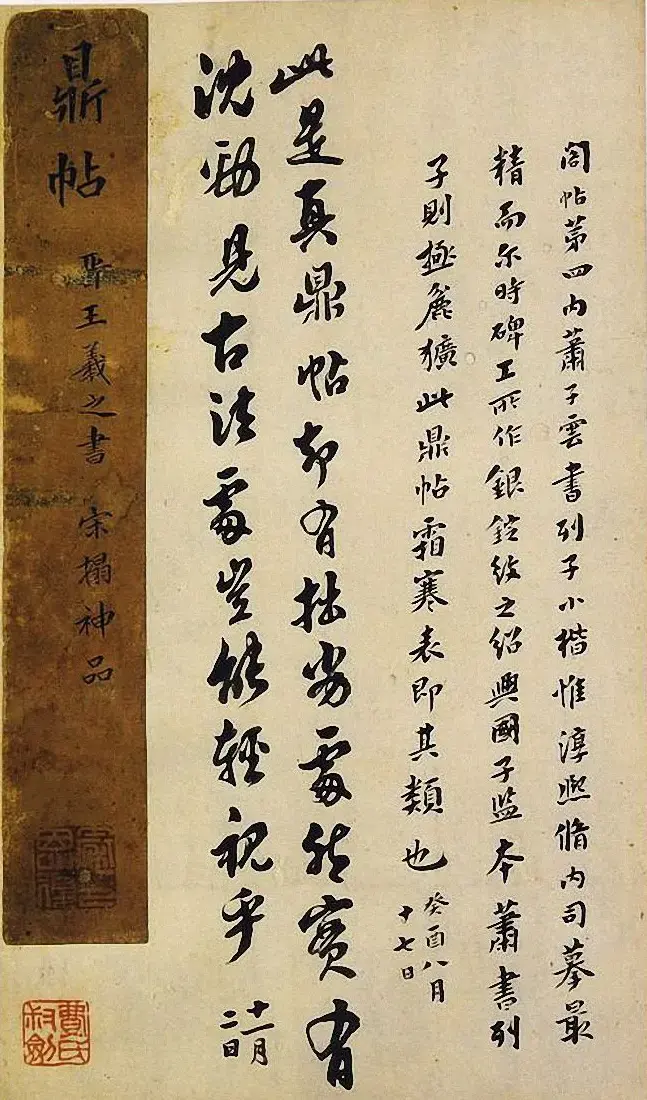 閣帖第四内蕭子雲書列子小楷惟淳熙脩内司摹最
精而尔時碑工所作銀錠紋之紹興國子監本蕭書列
子則極麄獷此鼎帖霜寒表即其類也
癸酉八月
十七日
此是真鼎帖却有拙劣處然實有
沈勁見古法處豈能輕視乎
十一月
二日
鼎帖
晉王羲之書 宋搨神品
費氏